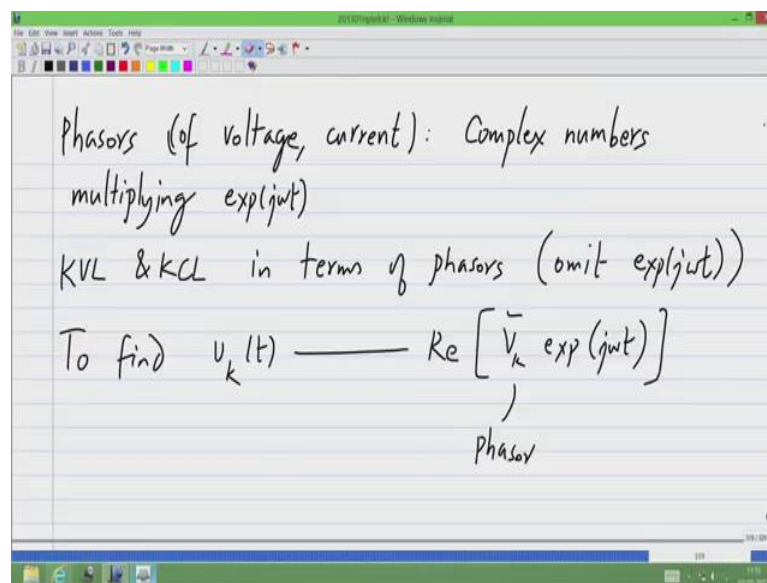 Windows Journal
File Edit View Insert Actions Tools Help
Page Width
B I
Phasors (of voltage, current): Complex numbers
multiplying exp(jωt)
KVL & KCL in terms of phasors (omit exp(jωt))
To find v_k(t) —— Re [V̄_k exp(jωt)]
phasor